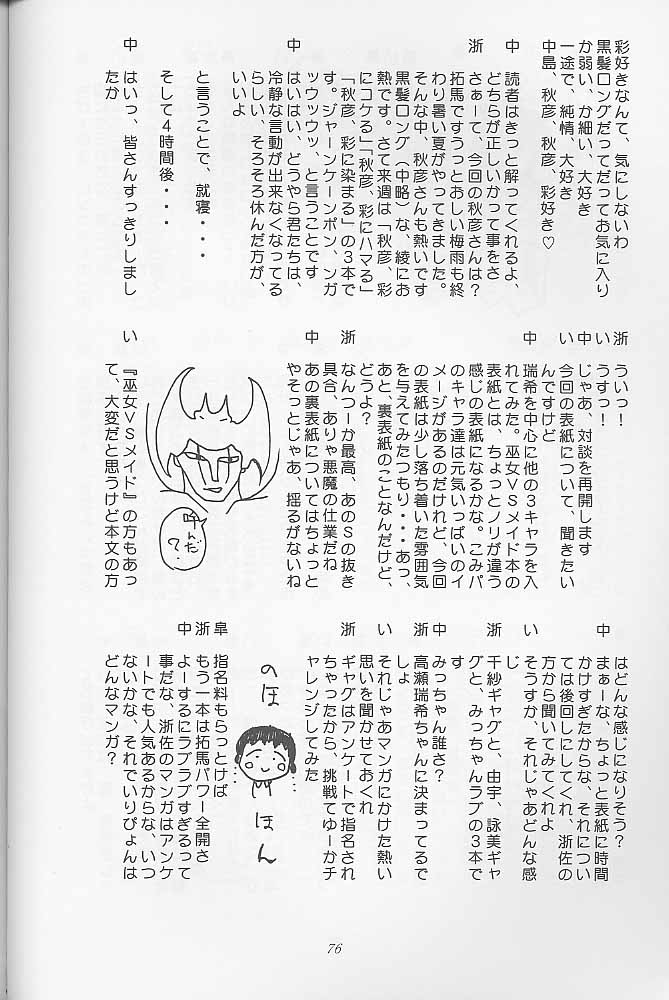 彩好きなんて、気にしないわ
黒髪ロングだってだってお気に入り
か弱い、か細い、大好き
一途で、純情、大好き
中島、秋彦、秋彦、彩好き♡
中　読者はきっと解ってくれるよ、
どちらが正しいかって事をさ
浙　さぁーて、今回の秋彦さんは？
拓馬ですうっとおしい梅雨も終
わり暑い夏がやってきました。
そんな中、秋彦さんも熱いです
黒髪ロング（中略）な、綾にお
熱です。さて来週は「秋彦、彩
にコケる」「秋彦、彩にハマる」
「秋彦、彩に染まる」の３本で
す。ジャーンケーンポン、ンガ
ッウウッッ、と言うことです
中　はいはい、どうやら君たちは、
冷静な言動が出来なくなってる
らしい、そろそろ休んだ方が、
いいよ
と言うことで、就寝・・・
そして４時間後・・・
中　はいっ、皆さんすっきりしまし
たか
浙　ういっ！
い　うすっ！
中　じゃあ、対談を再開します
い　今回の表紙について、聞きたい
んですけど
中　瑞希を中心に他の３キャラを入
れてみた。巫女ＶＳメイド本の
表紙とは、ちょっとノリが違う
感じの表紙になるかな。こみパ
のキャラ達は元気いっぱいのイ
メージがあるのだけれど、今回
の表紙は少し落ち着いた雰囲気
を与えてみたつもり・・・あっ、
あと、裏表紙のことなんだけど、
どうよ？
浙　なんつーか最高、あのＳの抜き
具合、ありゃ悪魔の仕業だね
中　あの裏表紙についてはちょっと
やそっとじゃあ、揺るがないね
呼んだ？
い　『巫女ＶＳメイド』の方もあっ
て、大変だと思うけど本文の方
はどんな感じになりそう？
中　まぁーな、ちょっと表紙に時間
かけすぎたからな、それについ
ては後回しにしてくれ、浙佐の
方から聞いてみてくれよ
い　そうすか、それじゃあどんな感
じ
浙　千紗ギャグと、由宇、詠美ギャ
グと、みっちゃんラブの３本で
す
中　みっちゃん誰さ？
浙　高瀬瑞希ちゃんに決まってるで
しょ
い　それじゃあマンガにかけた熱い
思いを聞かせておくれ
浙　ギャグはアンケートで指名され
ちゃったから、挑戦てゆーかチ
ャレンジしてみた
のほ
ほん
皐　指名料もらっとけば
浙　もう一本は拓馬パワー全開さ
中　よーするにラブラブすぎるって
事だな、浙佐のマンガはアンケ
ートでも人気あるからな、いつ
ないかな、それでいりぴょんは
どんなマンガ？
76